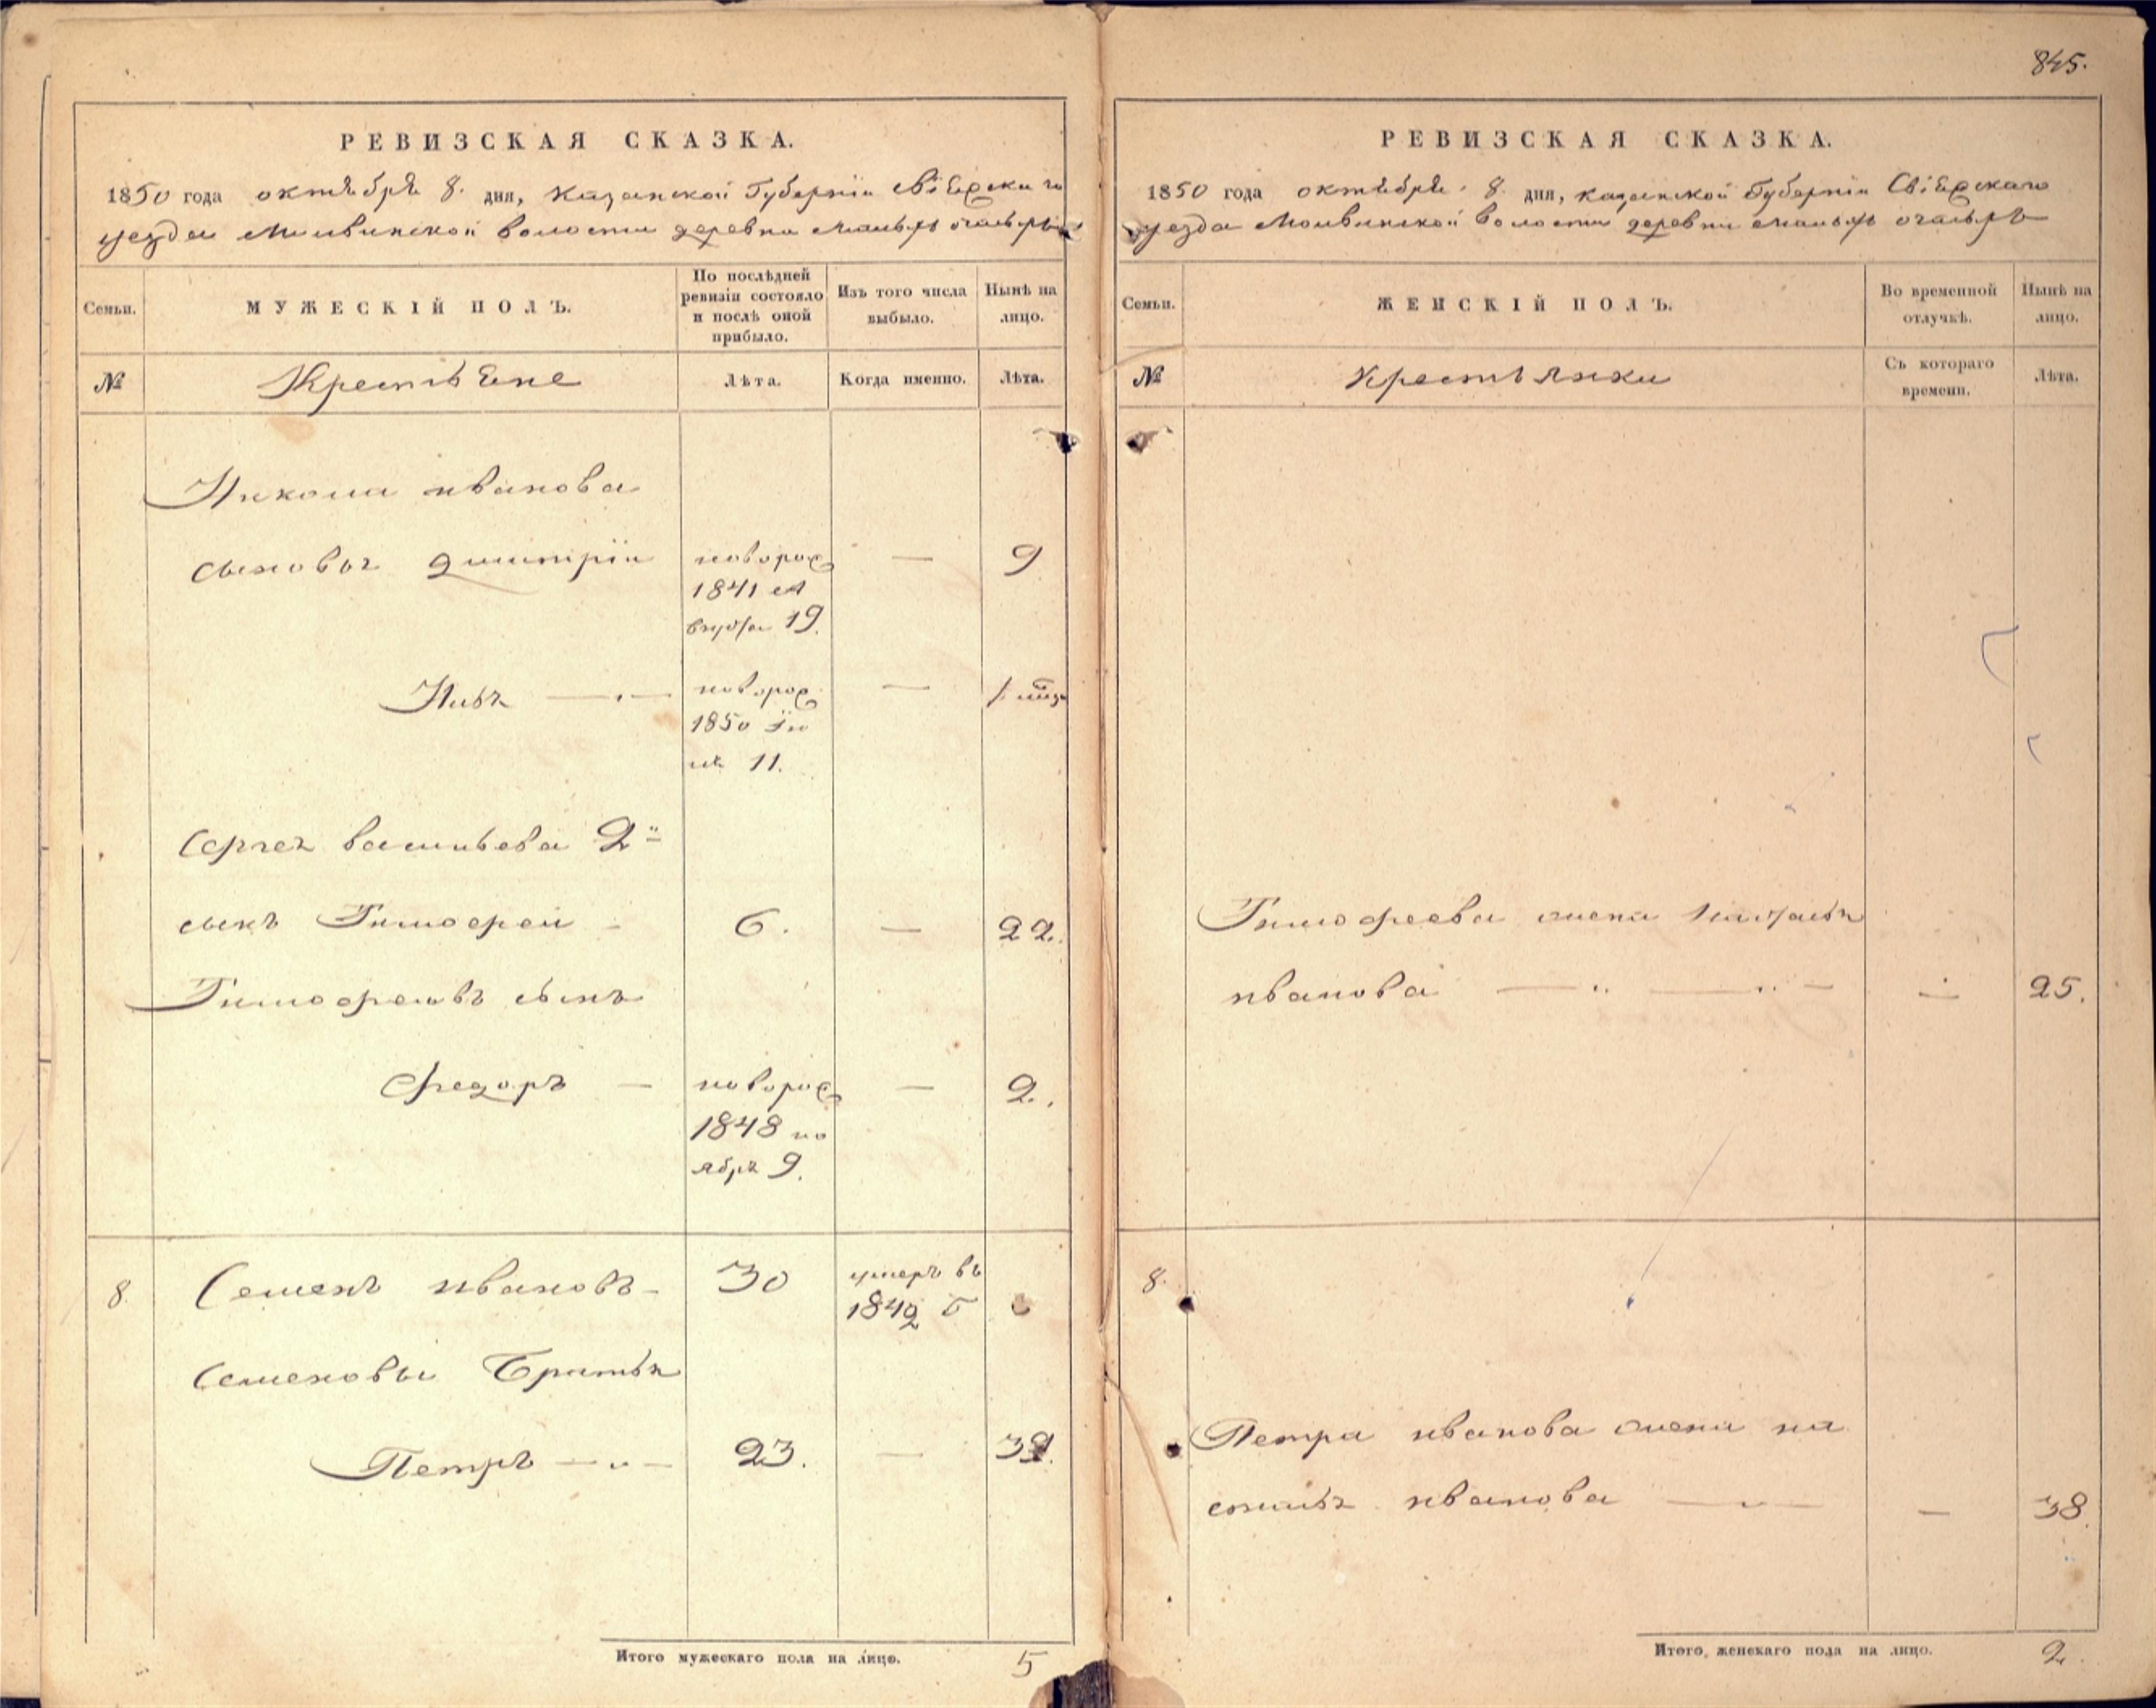 845.
РЕВИЗСКАЯ СКАЗКА.
1850 года октября 8. дня, Казанской Губернiи Свiяжскаго
уезда Молвинской волости деревни малыхъ очасыръ
Семьи.
МУЖЕСКІЙ ПОЛЪ.
По послѣдней
ревизіи состояло
и послѣ оной
прибыло.
Изъ того числа
выбыло.
Нынѣ на
лицо.
№
Крестьяне
Лѣта.
Когда именно.
Лѣта.
Никола иванова
сыновья дмитрiи
новорож
1841 ав
густа 19.
—
9
Илья
новорож
1850 iю
ля 11.
—
Сергея васильева 2й
сынъ Тимофей
6.
—
22.
Тимофеевъ сынъ
Федоръ —
новорож
1848 но
ября 9.
—
2.
8
Семенъ ивановъ
30
умеръ въ
1842 г
Семеновы Братья
Петръ
23.
—
Итого мужескаго пола на лицо.
5
РЕВИЗСКАЯ СКАЗКА.
1850 года октября 8 дня, казанской Губернiи Свiяжскаго
уезда Молвинской волости деревни малыхъ очасыръ
Семьи.
ЖЕНСКІЙ ПОЛЪ.
Во временной
отлучкѣ.
Нынѣ на
лицо.
№
Крестьянки
Съ котораго
времени.
Лѣта.
Тимофеева жена Наталья
иванова
—
25.
8.
Петра иванова жена на
сталья иванова
—
38.
Итого женскаго пола на лицо.
2.